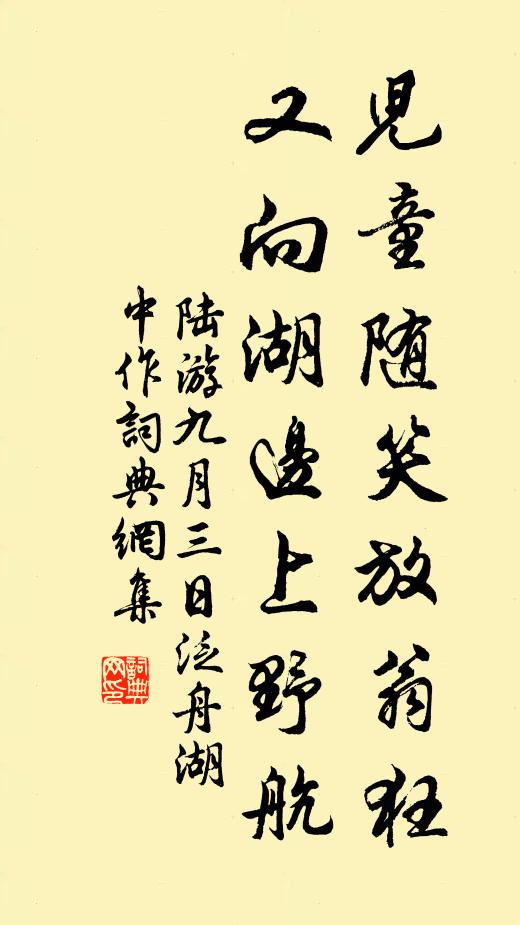 児童随笑放翁狂
又向湖邊上野航
陆游九月三日泛舟湖
中作詞典網集
詞典
网印